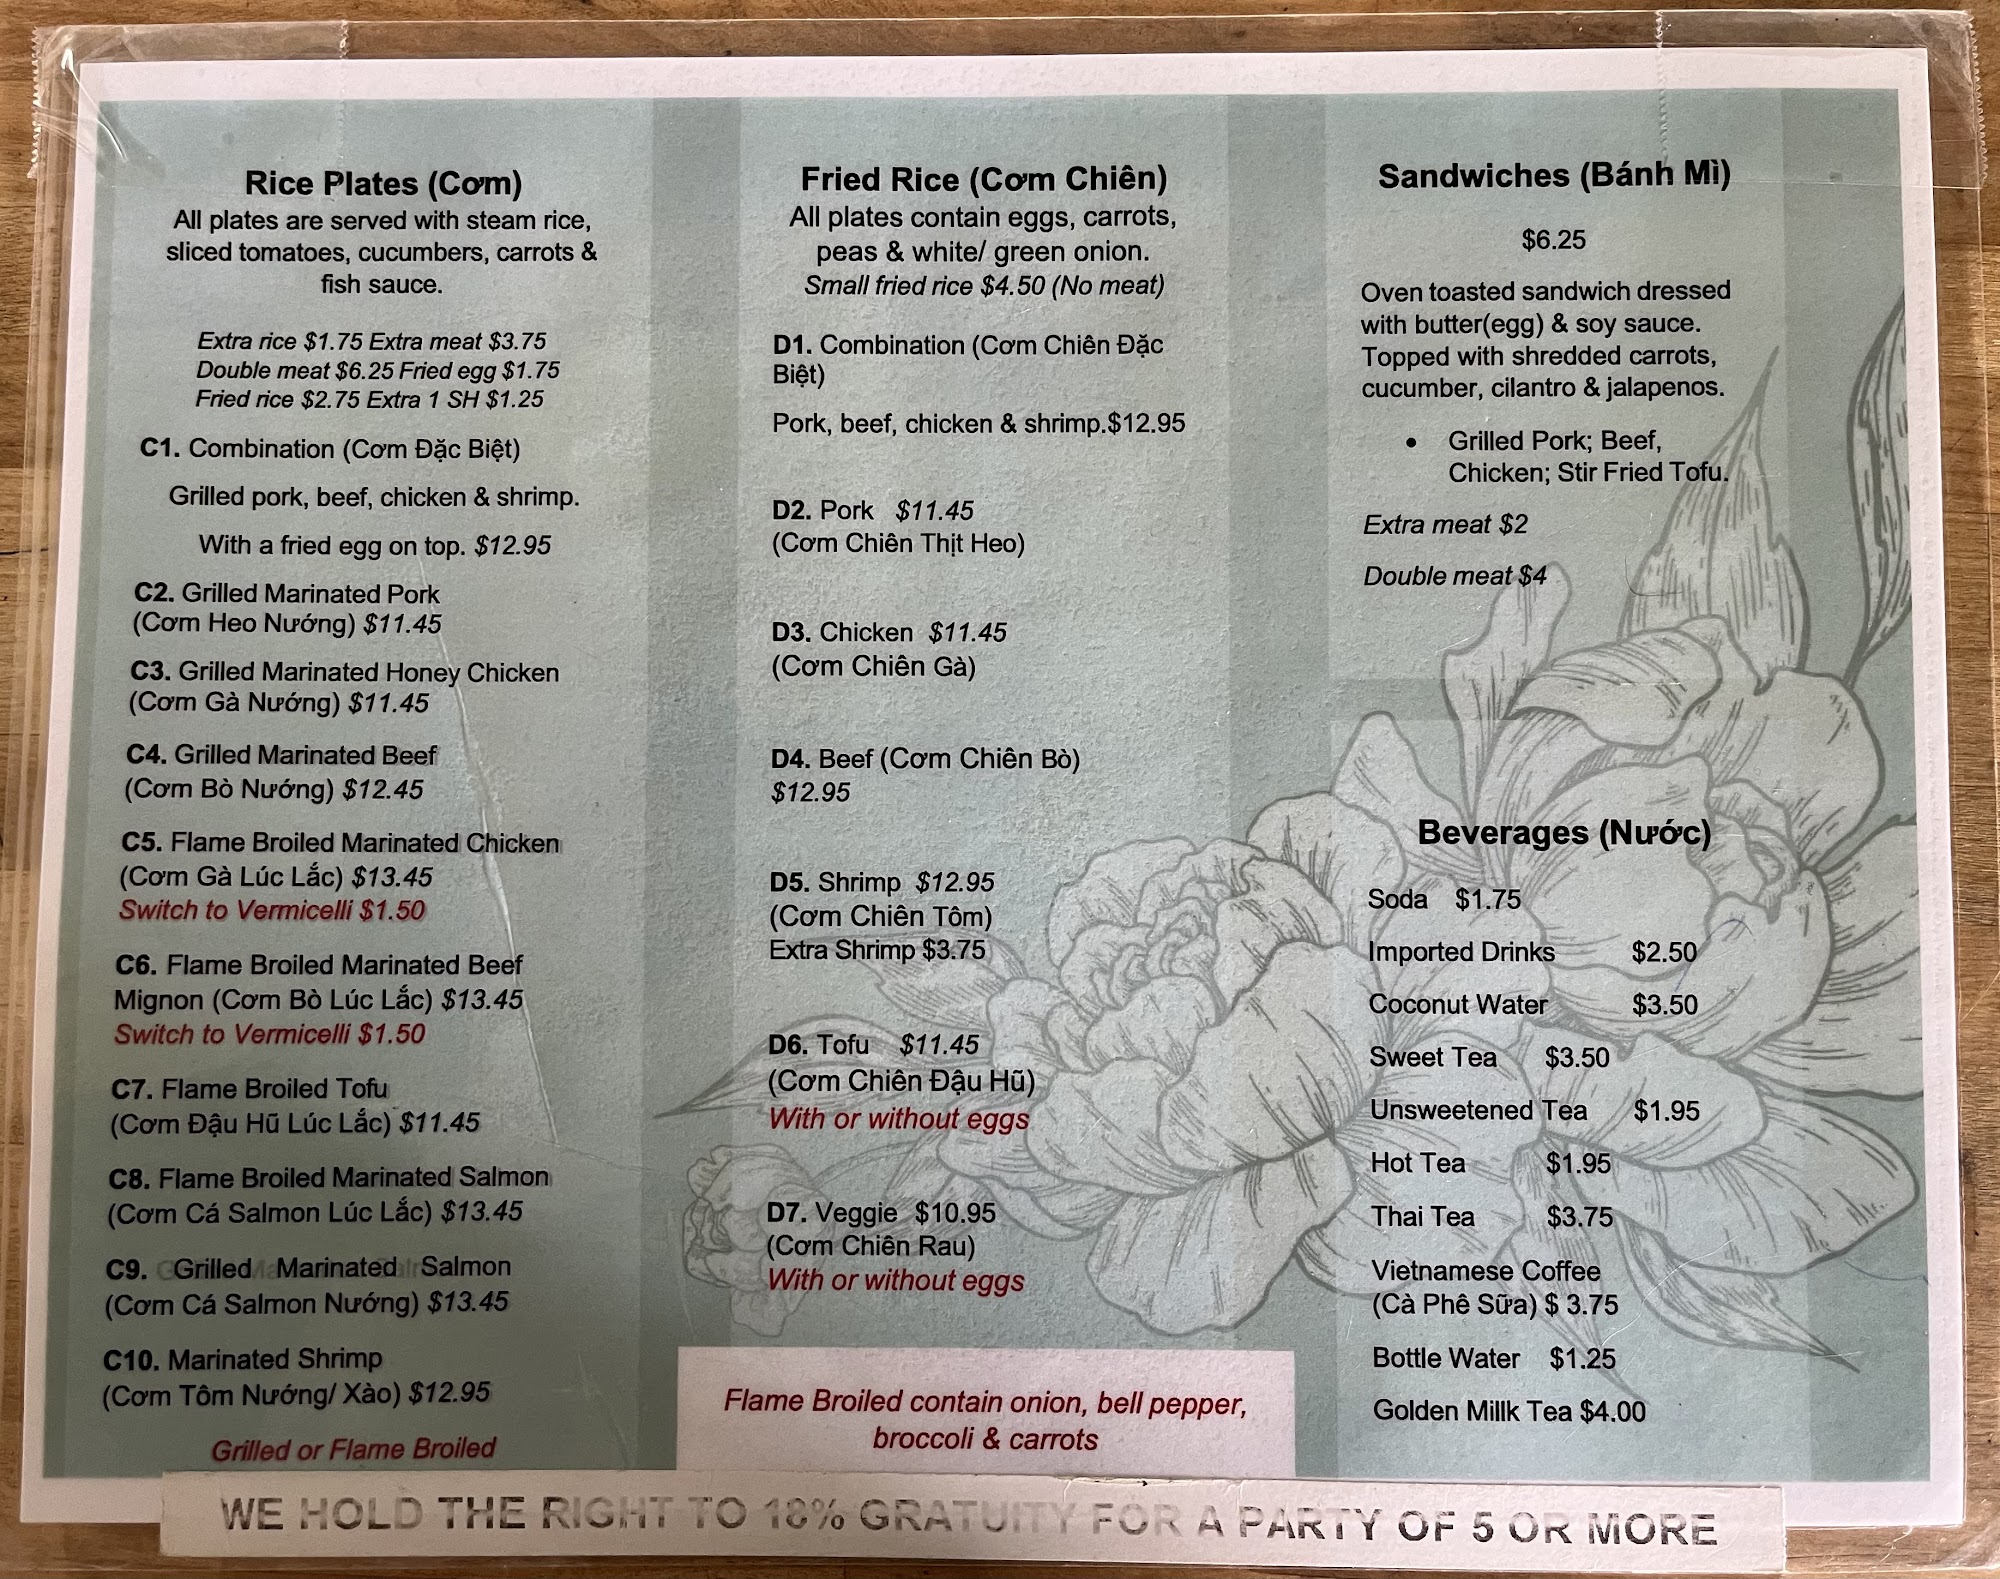 Rice Plates (Cơm)
All plates are served with steam rice,
sliced tomatoes, cucumbers, carrots &
fish sauce.
Extra rice $1.75 Extra meat $3.75
Double meat $6.25 Fried egg $1.75
Fried rice $2.75 Extra 1 SH $1.25
C1. Combination (Cơm Đặc Biệt)
Grilled pork, beef, chicken & shrimp.
With a fried egg on top. $12.95
C2. Grilled Marinated Pork
(Cơm Heo Nướng) $11.45
C3. Grilled Marinated Honey Chicken
(Cơm Gà Nướng) $11.45
C4. Grilled Marinated Beef
(Cơm Bò Nướng) $12.45
C5. Flame Broiled Marinated Chicken
(Cơm Gà Lúc Lắc) $13.45
Switch to Vermicelli $1.50
C6. Flame Broiled Marinated Beef
Mignon (Cơm Bò Lúc Lắc) $13.45
Switch to Vermicelli $1.50
C7. Flame Broiled Tofu
(Cơm Đậu Hũ Lúc Lắc) $11.45
C8. Flame Broiled Marinated Salmon
(Cơm Cá Salmon Lúc Lắc) $13.45
C9. Grilled Marinated Salmon
(Cơm Cá Salmon Nướng) $13.45
C10. Marinated Shrimp
(Cơm Tôm Nướng/ Xào) $12.95
Grilled or Flame Broiled
Fried Rice (Cơm Chiên)
All plates contain eggs, carrots,
peas & white/ green onion.
Small fried rice $4.50 (No meat)
D1. Combination (Cơm Chiên Đặc
Biệt)
Pork, beef, chicken & shrimp.$12.95
D2. Pork $11.45
(Cơm Chiên Thịt Heo)
D3. Chicken $11.45
(Cơm Chiên Gà)
D4. Beef (Cơm Chiên Bò)
$12.95
D5. Shrimp $12.95
(Cơm Chiên Tôm)
Extra Shrimp $3.75
D6. Tofu $11.45
(Cơm Chiên Đậu Hũ)
With or without eggs
D7. Veggie $10.95
(Cơm Chiên Rau)
With or without eggs
Flame Broiled contain onion, bell pepper,
broccoli & carrots
Sandwiches (Bánh Mì)
$6.25
Oven toasted sandwich dressed
with butter(egg) & soy sauce.
Topped with shredded carrots,
cucumber, cilantro & jalapenos.
• Grilled Pork; Beef,
Chicken; Stir Fried Tofu.
Extra meat $2
Double meat $4
Beverages (Nước)
Soda $1.75
Imported Drinks $2.50
Coconut Water $3.50
Sweet Tea $3.50
Unsweetened Tea $1.95
Hot Tea $1.95
Thai Tea $3.75
Vietnamese Coffee
(Cà Phê Sữa) $ 3.75
Bottle Water $1.25
Golden Millk Tea $4.00
WE HOLD THE RIGHT TO 18% GRATUITY FOR A PARTY OF 5 OR MORE